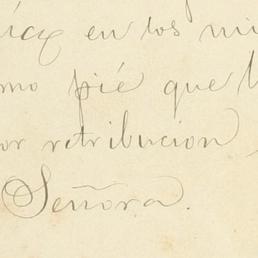 en los mi
mo pié que l
or retribucion
Señora.